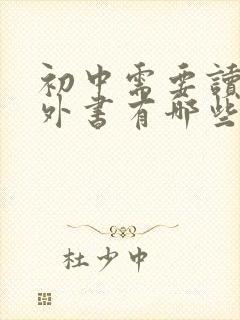 初中需要讀
外書有哪些
杜少中